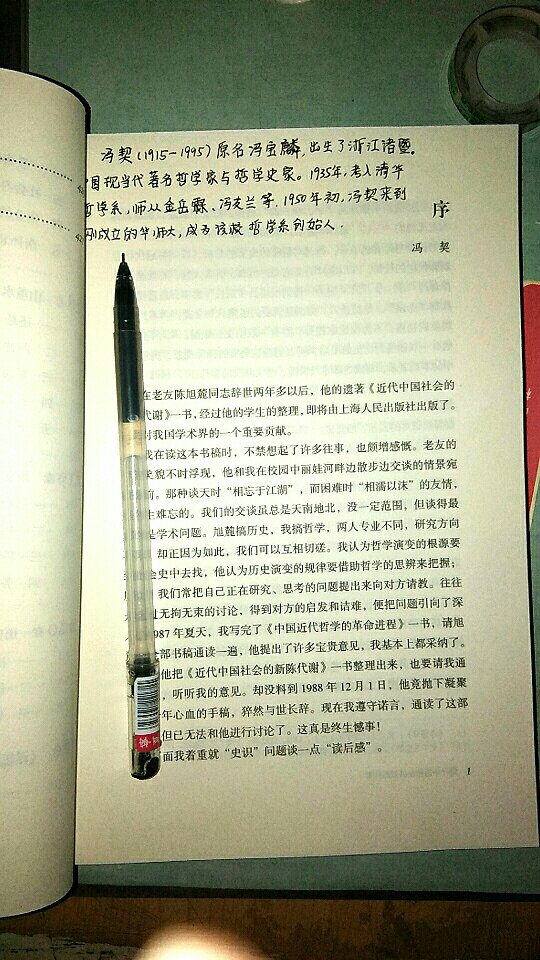 冯契(1915-1995)原名冯宝麟,出生了浙江诸暨.
国现当代著名哲学家与哲学史家。1935年,考入清华
哲学系,师从金岳霖、冯友兰等.1950年初,冯契来到
刚成立的华师大,成为该校哲学系创始人.
序
冯 契
在老友陈旭麓同志辞世两年多以后,他的遗著《近代中国社会的
代谢》一书,经过他的学生的整理,即将由上海人民出版社出版了。
对我国学术界的一个重要贡献。
我在读这本书稿时,不禁想起了许多往事,也颇增感慨。老友的
笑貌不时浮现,他和我在校园中丽娃河畔边散步边交谈的情景宛
前。那种谈天时“相忘于江湖”,而困难时“相濡以沫”的友情,
生难忘的。我们的交谈虽总是天南地北,没一定范围,但谈得最
是学术问题。旭麓搞历史,我搞哲学,两人专业不同,研究方向
却正因为如此,我们可以互相切磋。我认为哲学演变的根源要
会史中去找,他认为历史演变的规律要借助哲学的思辨来把握;
我们常把自己正在研究、思考的问题提出来向对方请教。往往
过无拘无束的讨论,得到对方的启发和诘难,便把问题引向了深
987年夏天,我写完了《中国近代哲学的革命进程》一书,请旭
全部书稿通读一遍,他提出了许多宝贵意见,我基本上都采纳了。
他把《近代中国社会的新陈代谢》一书整理出来,也要请我通
,听听我的意见。却没料到1988年12月1日,他竟抛下凝聚
年心血的手稿,猝然与世长辞。现在我遵守诺言,通读了这部
但已无法和他进行讨论了。这真是终生憾事!
面我着重就“史识”问题谈一点“读后感”。
1